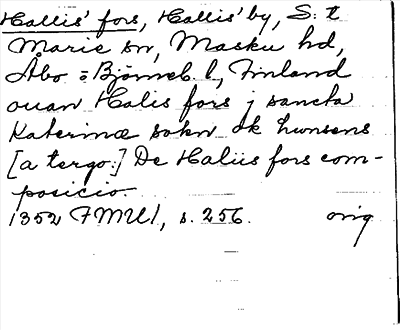 Hallis' fors, Hallis' by, S:t
Marie sn, Masku hd,
Åbo o Björneb. l., Finland
ouan Halis fors j sancta
Katerinæ sokn ok hwnsens
[a tergo:] De Haliis fors com-
posicio.
1352 FMU 1, s. 256. orig